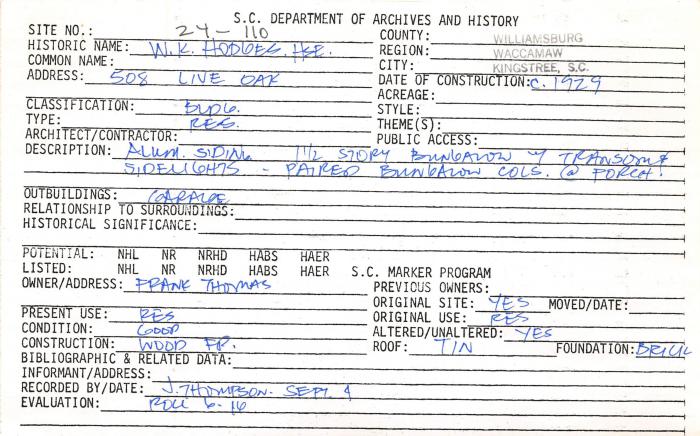 S.C. DEPARTMENT OF ARCHIVES AND HISTORY
SITE NO.: 24-110 COUNTY: WILLIAMSBURG
HISTORIC NAME: W.K. HODGES HSE. REGION: WACCAMAW
COMMON NAME: CITY: KINGSTREE, S.C.
ADDRESS: 508 LIVE OAK DATE OF CONSTRUCTION: C. 1929
ACREAGE:
CLASSIFICATION: BLDG. STYLE:
TYPE: RES. THEME(S):
ARCHITECT/CONTRACTOR: PUBLIC ACCESS:
DESCRIPTION: ALUM. SIDING 1 1/2 STORY BUNGALOW W/ TRANSOM &
SIDELIGHTS - PAIRED BUNGALOW COLS. @ PORCH.
OUTBUILDINGS: GARAGE
RELATIONSHIP TO SURROUNDINGS:
HISTORICAL SIGNIFICANCE:
POTENTIAL: NHL NR NRHD HABS HAER
LISTED: NHL NR NRHD HABS HAER S.C. MARKER PROGRAM
OWNER/ADDRESS: FRANK THOMAS PREVIOUS OWNERS:
ORIGINAL SITE: YES MOVED/DATE:
PRESENT USE: RES ORIGINAL USE: RES
CONDITION: GOOD ALTERED/UNALTERED: YES
CONSTRUCTION: WOOD FR. ROOF: TIN FOUNDATION: BRICK
BIBLIOGRAPHIC & RELATED DATA:
INFORMANT/ADDRESS:
RECORDED BY/DATE: J. THOMPSON - SEPT. 9
EVALUATION: ROLL 6-16